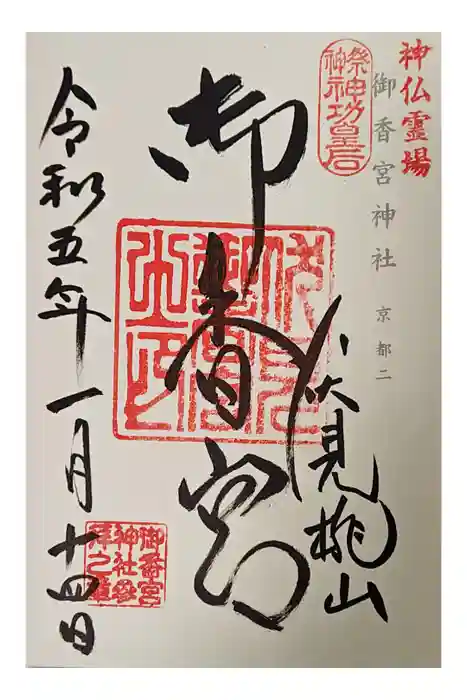 神仏霊場
御香宮神社 京都二
祭神
神功皇后
伏見桃山
御香宮
伏見
御香宮
之印
令和五年一月十四日
御香宮
神社参
拝之章